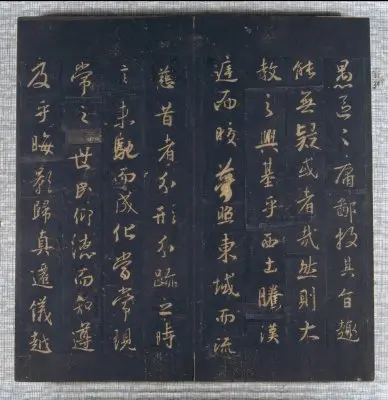 愚區區庸鄙投其旨趣
能無疑或者哉然則大
教之興基乎西土騰漢
庭而皎夢照東域而流
慈昔者分形分跡之時
言未馳而成化當常現
常之世民仰德而知遵
及乎晦影歸真遷儀越